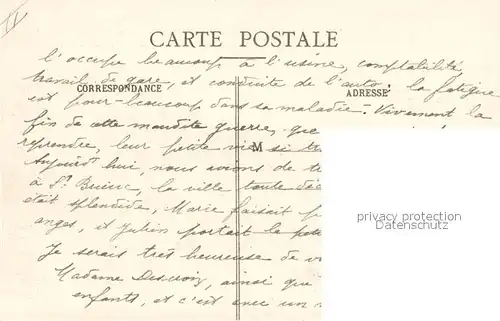 II
CARTE POSTALE
l'occupe beaucoup à l'usine, comptabilité
travail de gare, et conduite de l'auto, la fatigue
CORRESPONDANCE
ADRESSE
est pour beaucoup dans sa maladie - Vivement la
fin de cette maudite guerre, que
reprendre, leur petite vie si tr
M
Aujourd'hui, nous avions de
à St Brieuc, la ville toute déc
était splendide, Marie faisait
anges, et Julien portait la
Je serais très heureuse de v
Madame ainsi que
enfants, et c'est avec un
privacy protection
Datenschutz